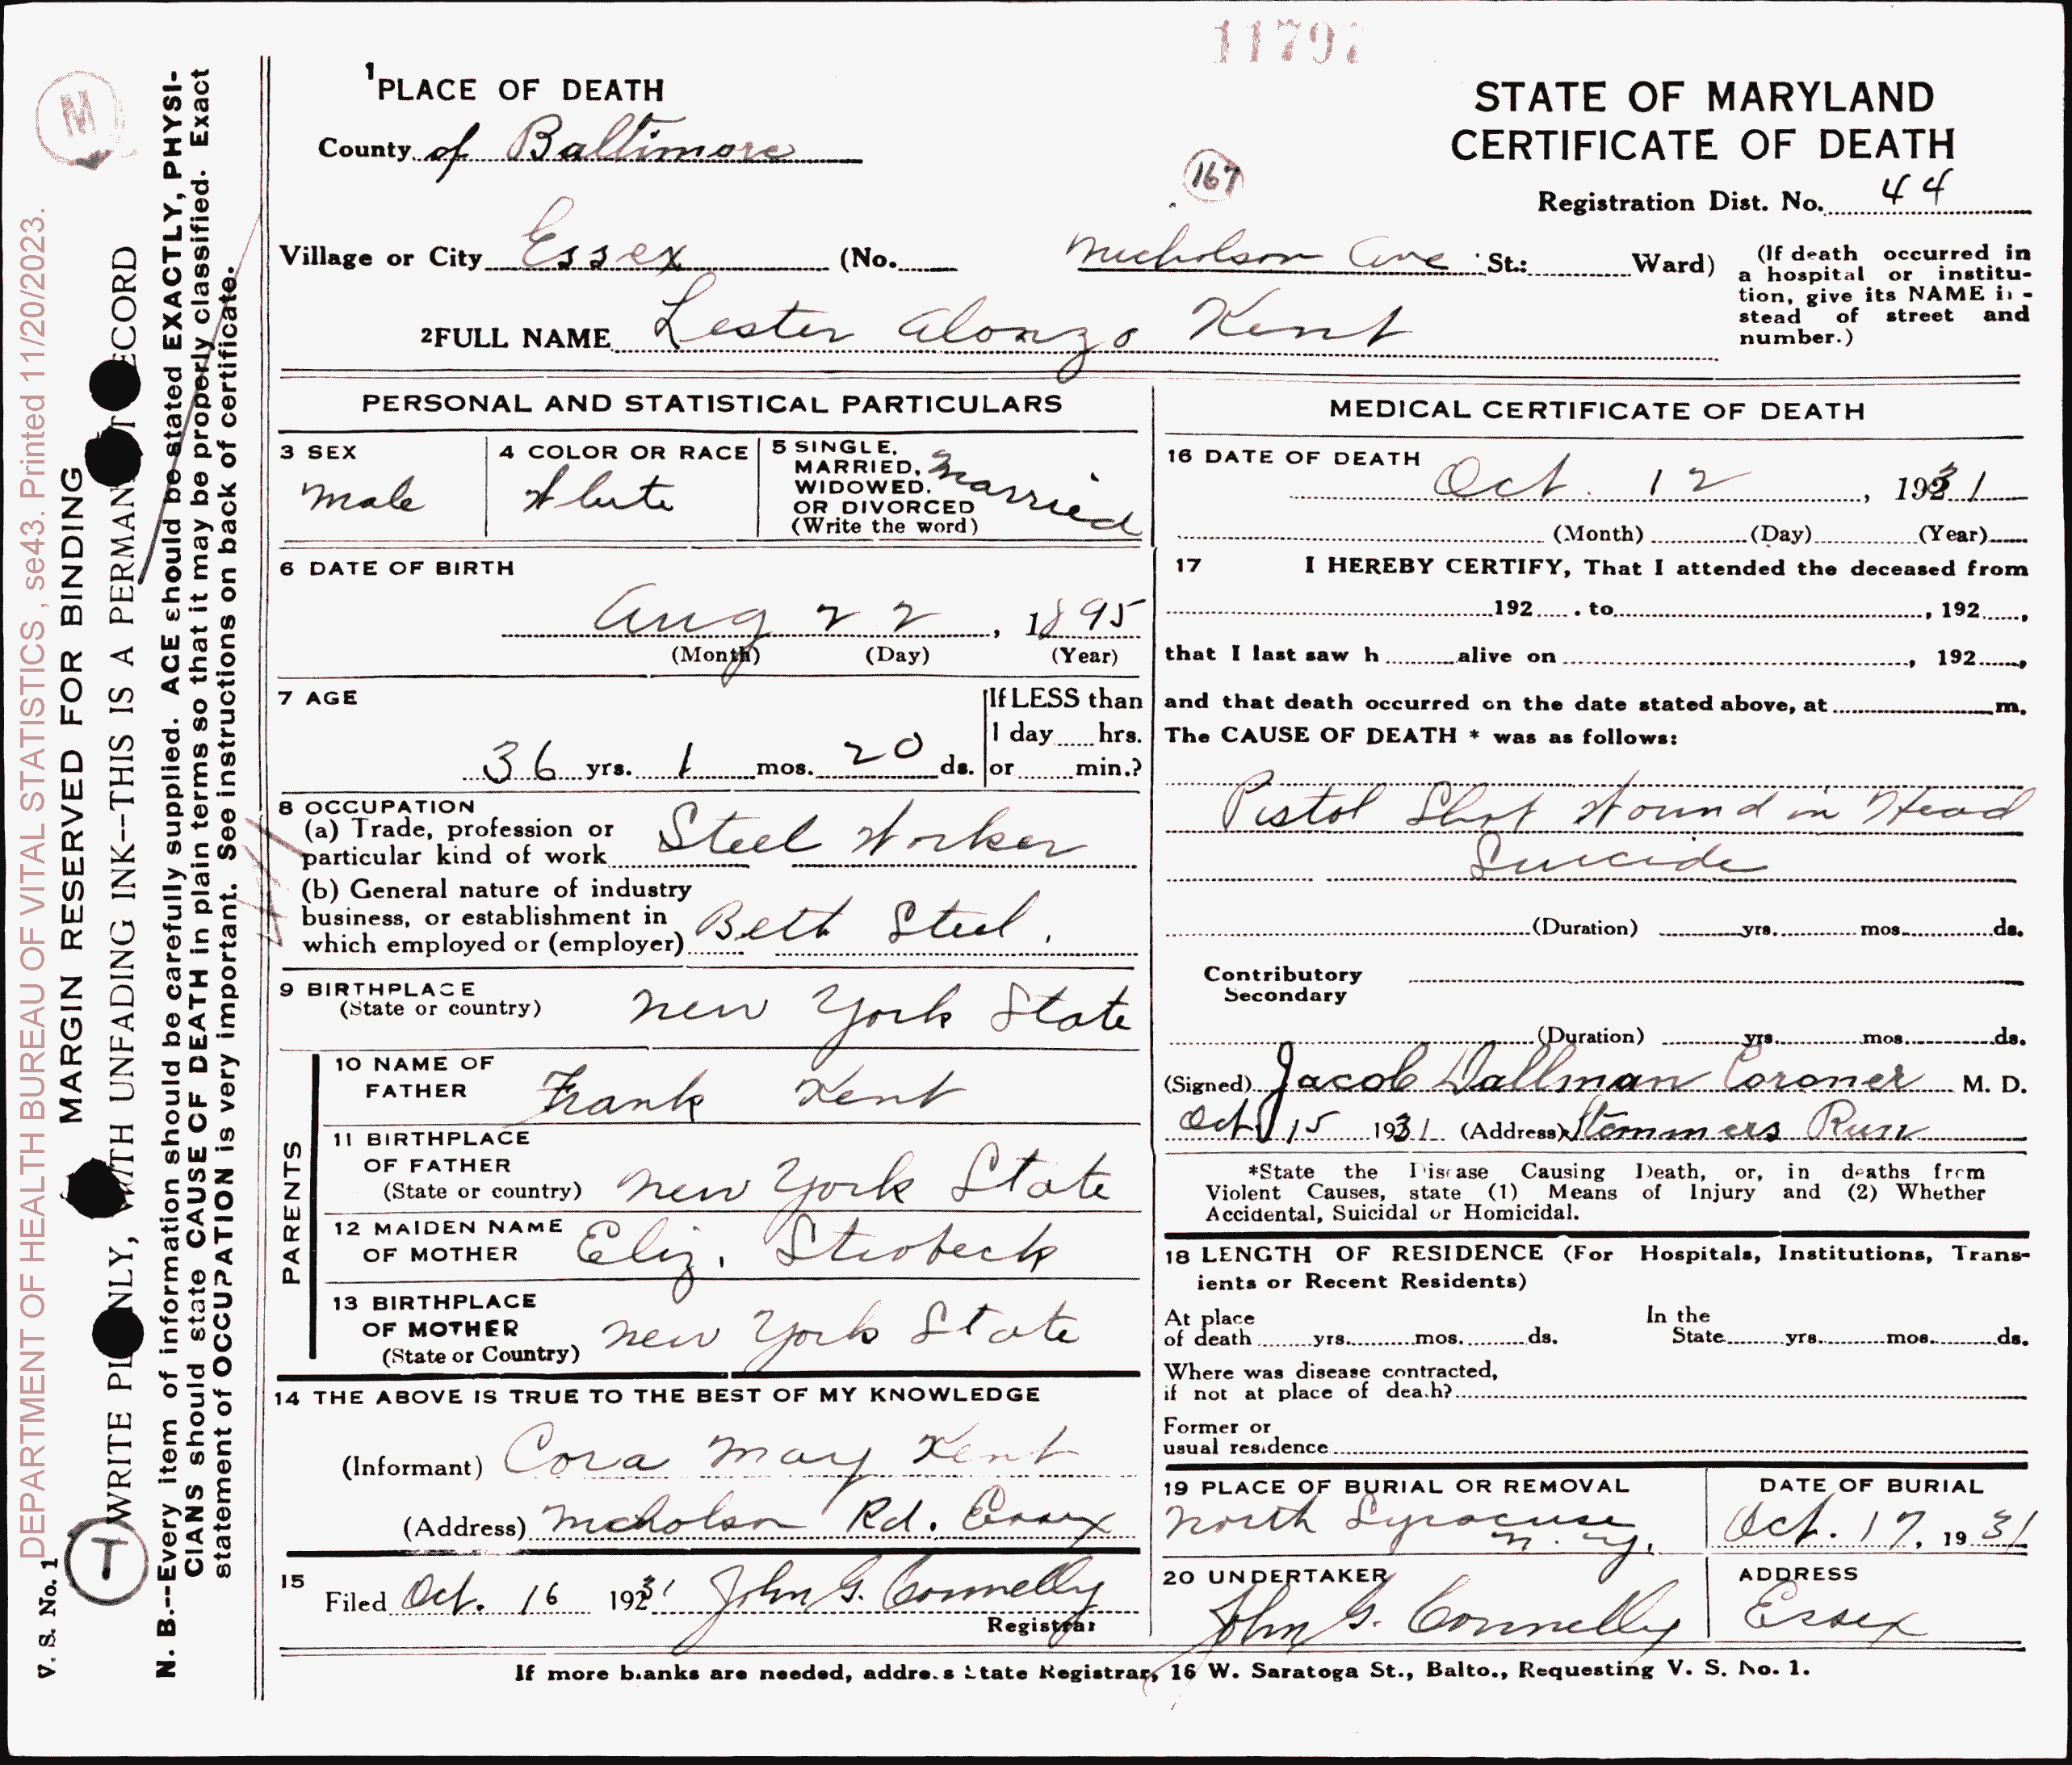 11797
1 PLACE OF DEATH
County of Baltimore
STATE OF MARYLAND
CERTIFICATE OF DEATH
167
Registration Dist. No. 44
Village or City Essex (No. Nicholson Ave St.: Ward)
(If death occurred in
a hospital or institu-
tion, give its NAME in-
stead of street and
number.)
2 FULL NAME Lester Alonzo Kent
PERSONAL AND STATISTICAL PARTICULARS
3 SEX
Male
4 COLOR OR RACE
White
5 SINGLE,
MARRIED,
WIDOWED,
OR DIVORCED
(Write the word)
Married
6 DATE OF BIRTH
Aug 22, 1895
(Month) (Day) (Year)
7 AGE
36 yrs. 1 mos. 20 ds.
If LESS than
1 day hrs.
or min.?
8 OCCUPATION
(a) Trade, profession or
particular kind of work Steel Worker
(b) General nature of industry
business, or establishment in
which employed or (employer) Beth Steel.
9 BIRTHPLACE
(State or country) New York State
PARENTS
10 NAME OF
FATHER Frank Kent
11 BIRTHPLACE
OF FATHER
(State or country) New York State
12 MAIDEN NAME
OF MOTHER Eliz. Strobeck
13 BIRTHPLACE
OF MOTHER
(State or Country) New York State
14 THE ABOVE IS TRUE TO THE BEST OF MY KNOWLEDGE
(Informant) Cora May Kent
(Address) Nicholson Rd. Essex
15
Filed Oct. 16 1931 John G. Connelly
Registrar
MEDICAL CERTIFICATE OF DEATH
16 DATE OF DEATH
Oct. 12, 1931
(Month) (Day) (Year)
17 I HEREBY CERTIFY, That I attended the deceased from
192 . to , 192 ,
that I last saw h alive on , 192 ,
and that death occurred on the date stated above, at m.
The CAUSE OF DEATH * was as follows:
Pistol Shot Wound in Head
Suicide
(Duration) yrs. mos. ds.
Contributory
Secondary
(Duration) yrs. mos. ds.
(Signed) Jacob Dallman Coroner M. D.
Oct 15 1931 (Address) Stemmers Run
*State the Disease Causing Death, or, in deaths from
Violent Causes, state (1) Means of Injury and (2) Whether
Accidental, Suicidal or Homicidal.
18 LENGTH OF RESIDENCE (For Hospitals, Institutions, Trans-
ients or Recent Residents)
At place
of death yrs. mos. ds.
In the
State yrs. mos. ds.
Where was disease contracted,
if not at place of death?
Former or
usual residence
19 PLACE OF BURIAL OR REMOVAL
North Syracuse
N. Y.
DATE OF BURIAL
Oct. 17, 1931
20 UNDERTAKER
John G. Connelly
ADDRESS
Essex
If more blanks are needed, address State Registrar, 16 W. Saratoga St., Balto., Requesting V. S. No. 1.
DEPARTMENT OF HEALTH BUREAU OF VITAL STATISTICS, se43. Printed 11/20/2023.
V. S. No. 1
MARGIN RESERVED FOR BINDING
WRITE PL NLY, WITH UNFADING INK--THIS IS A PERMAN T ECORD
N. B.--Every item of information should be carefully supplied. AGE should be stated EXACTLY, PHYSI-
CIANS should state CAUSE OF DEATH in plain terms so that it may be properly classified. Exact
statement of OCCUPATION is very important. See instructions on back of certificate.
M
T